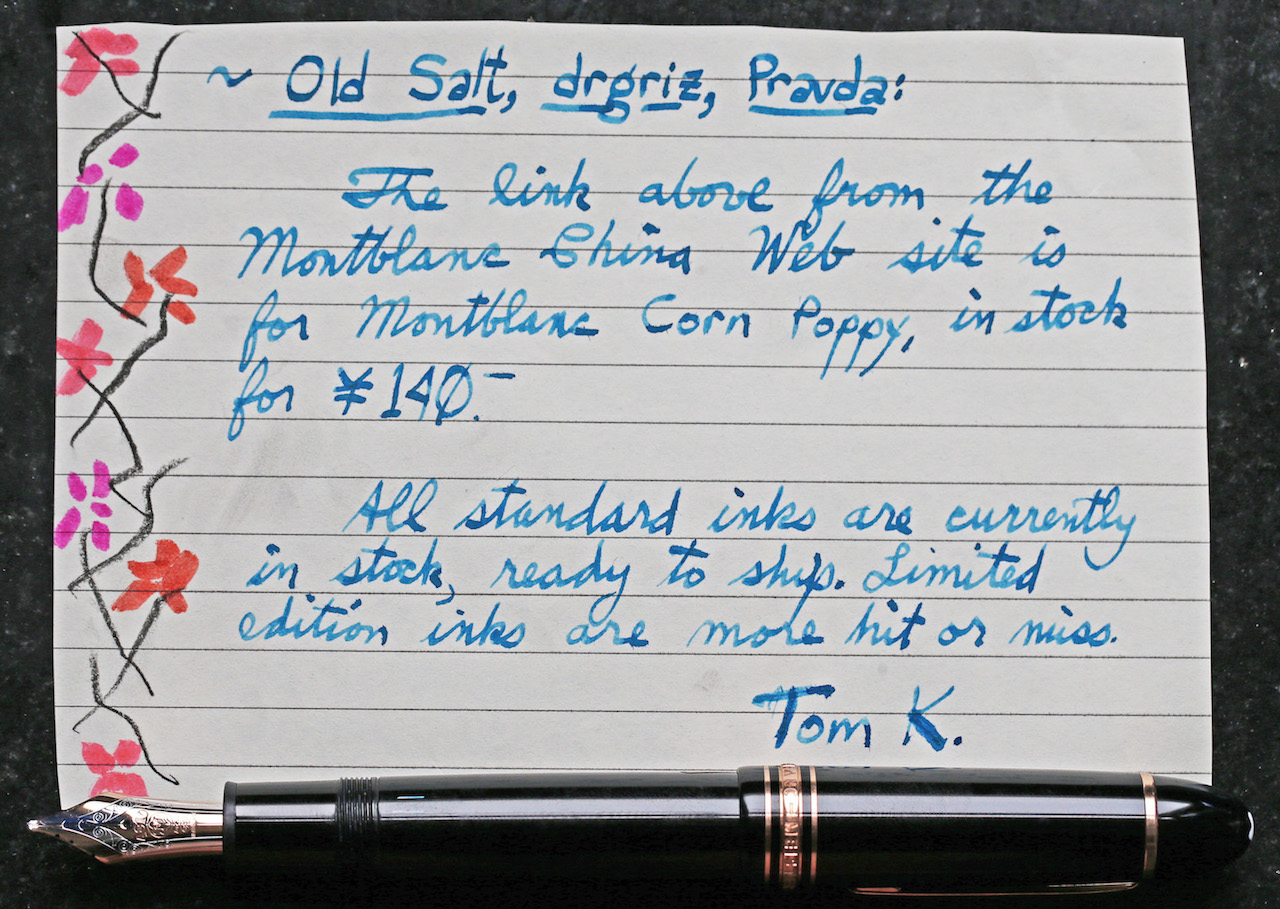 ~ Old Salt, drgriz, Pravda:
The link above from the
Montblanc China Web site is
for Montblanc Corn Poppy, in stock
for ¥140.—
All standard inks are currently
in stock, ready to ship. Limited
edition inks are more hit or miss.
Tom K.